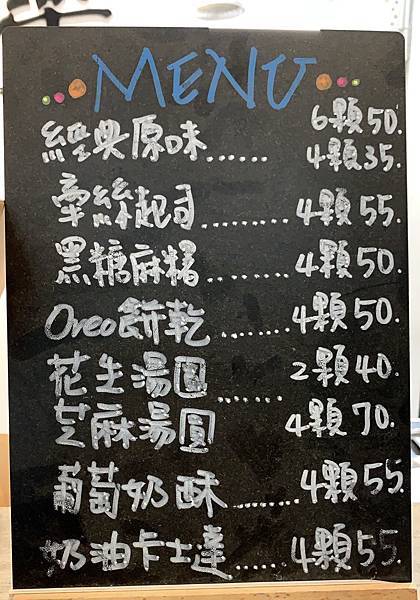 MENU
經典原味...... 6顆50.
4顆35.
牽絲起司........4顆55.
黑糖麻糬.......4顆50.
Oreo餅乾......4顆50.
花生湯圓 2顆40.
.....
芝麻湯圓 4顆70.
葡萄奶酥......4顆55.
奶油卡士達....4顆55.